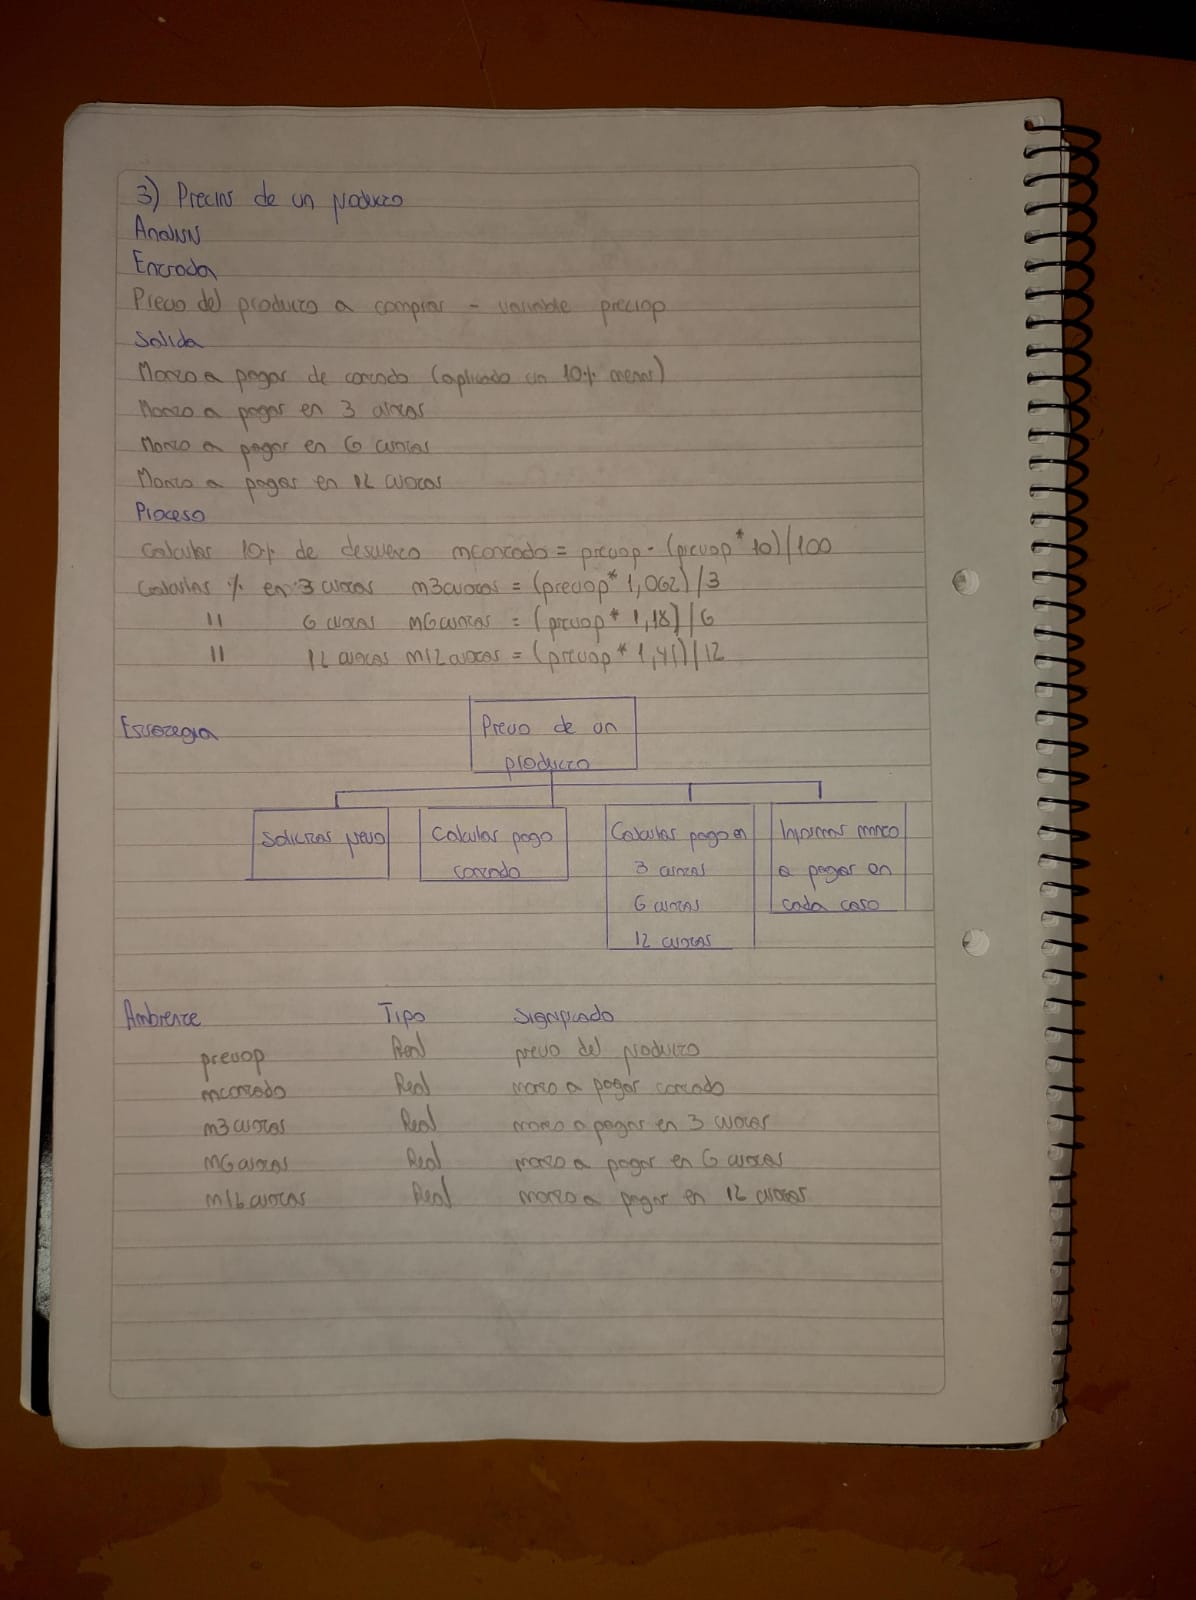 3) Precios de un producto
Analisis
Entrada
Precio del producto a comprar - variable preciop
Salida
Monto a pagar de contado (aplicado un 10% menos)
Monto a pagar en 3 cuotas
Monto a pagar en 6 cuotas
Monto a pagar en 12 cuotas
Proceso
Calcular 10% de descuento mcontado = preciop - (preciop * 10)/100
Calcular % en 3 cuotas m3cuotas = (preciop * 1,062)/3
" 6 cuotas m6cuotas = (preciop * 1,18)/6
" 12 cuotas m12cuotas = (preciop * 1,41)/12
Estrategia
Precio de un
producto
Solicitar precio
Calcular pago
contado
Calcular pago en
3 cuotas
6 cuotas
12 cuotas
Informar monto
a pagar en
cada caso
Ambiente Tipo Significado
preciop Real precio del producto
mcontado Real monto a pagar contado
m3cuotas Real monto a pagar en 3 cuotas
m6cuotas Real monto a pagar en 6 cuotas
m12cuotas Real monto a pagar en 12 cuotas